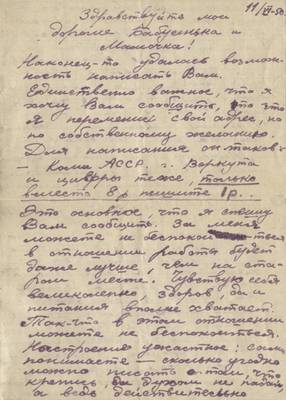 11/VI-50.
Здравствуйте мои
дорогие Бабусинька и
Мамочка!
Наконец-то удалось возмож-
ность написать Вам.
Единственно важное, что я
хочу Вам сообщить, это что
я переменил свой адрес, но
по собственному желанию.
Для написания он таков:
– Коми АССР. г. Воркута
и цифры теже, только
вместо 8 р пишите 1 р..
Это основное, что я спешу
Вам сообщить. За меня
можете не беспокоиться
в отношении работы будет
даже лучше, чем на ста-
ром месте. Чувствую себя
великолепно, здоров, да и
питания вполне хватает.
Так-что в этом отношении
можете не беспокоиться.
Настроение ужастное: сами
понимаете – сколько угодно
можно писать о том, что
крепись, да духом не падай,
а ведь действительно